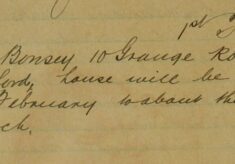 1st
Bonsey 10 Grange Ro
ford, house will be
February to about the
ch.